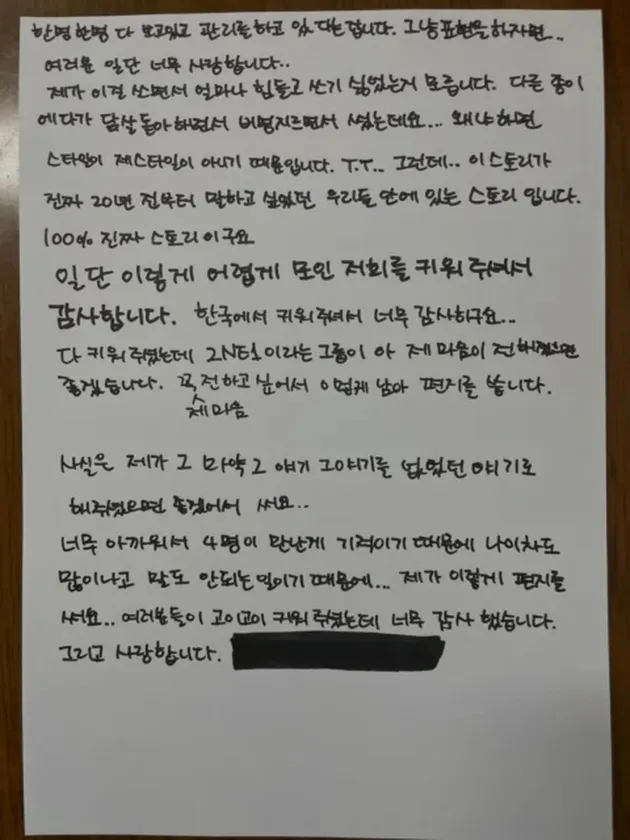 한명 한명 다 보고있고 관리를하고 있다는겁니다. 그냥표현을하자면..
여러분 일단 너무 사랑합니다..
제가 이걸 쓰면서 얼마나 힘들고 쓰기 싫었는지 모릅니다. 다른 종이
에다가 닭살돋아하면서 비명지르면서 썼는데요... 왜냐하면
스타일이 제스타일이 아니기 때문입니다. T.T.. 그런데.. 이스토리가
진짜 20년 전부터 말하고 싶었던 우리들 안에 있는 스토리 입니다.
100% 진짜 스토리이구요
일단 이렇게 어렵게 모인 저희를 키워주셔서
감사합니다. 한국에서 키워주셔서 너무 감사하구요...
다 키워주셨는데 2NE1이라는 그룹이 아 제 마음이 전해졌으면
좋겠습니다. 꼭 전하고 싶어서 이렇게 남아 편지를 씁니다.
제마음
사실은 제가 그 마약 그 얘기 그얘기를 없었던 얘기로
해주셨으면 좋겠어서 써요...
너무 아까워서 4명이 만난게 기적이기 때문에 나이차도
많이나고 말도 안되는일이기 때문에... 제가 이렇게 편지를
써요.. 여러분들이 고이고이 키워주셨는데 너무 감사 했습니다.
그리고 사랑합니다.